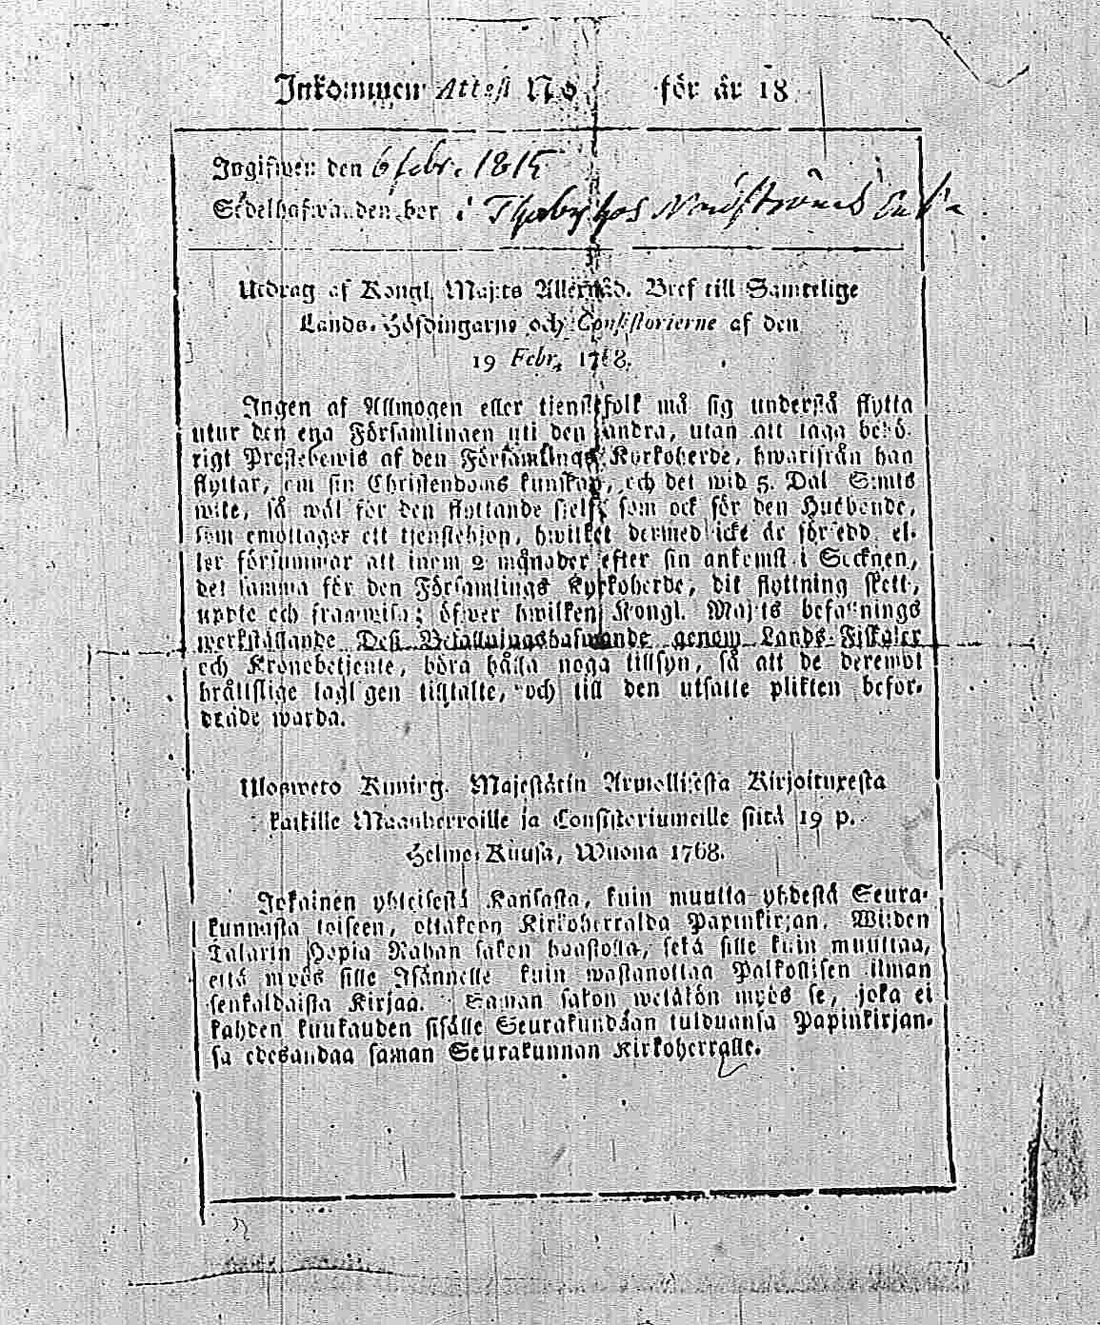 Inkommen Attest No för år 18
Ingifwen den 6 febr. 1815
Sedelhafwanden bor i
Utdrag af Kongl. Maj:ts Allernåd. Bref till Samtelige
Lands-Höfdingarne och Consistorierne af den
19 Febr. 1768.
Ingen af Allmogen eller tjenstefolk må sig understå flytta
utur den ena Församlingen uti den andra, utan att taga behö-
rigt Prestebewis af den Församlings Kyrkoherde, hwarifrån han
flyttar, om sin Christendoms kunskap, och det wid 5. Dal. S:mts
wite, så wäl för den flyttande sjelf, som ock för den Husbonde,
som emottager ett tjenstehjon, hwilket dermed icke är försedd, el-
ler försummar att inom 2 månader efter sin ankomst i Socknen,
det samma för den Församlings Kyrkoherde, dit flyttning skett,
uppte och framwisa; öfwer hwilken Kongl. Maj:ts befallnings
werkställande Deß Befallningshafwande genom Lands-Fiskaler
och Kronobetjente, böra hålla noga tillsyn, så att de deremot
bråttslige lagligen tilltalte, och till den utsatte plikten befor-
drade warda.
Ulosweto Kuning. Majestätin Armollisesta Kirjoituxesta
kaikille Maanherroille ja Consistoriumeille siitä 19 p.
Helme-Kuusa, Wuona 1768.
Jokainen yhteisestä Kansasta, kuin muutta yhdestä Seura-
kunnasta toiseen, ottakoon Kirkoherralda Papinkirjan, Wiiden
Talarin Hopia Rahan sakon haastolla, sekä sille kuin muuttaa,
että myös sille Isännelle kuin wastanottaa Palkollisen ilman
senkaldaista Kirjaa. Saman sakon wetäkön myös se, joka ei
kahden kuukauden sisälle Seurakundaan tulduansa Papinkirjan-
sa edesandaa saman Seurakunnan Kirkoherralle.